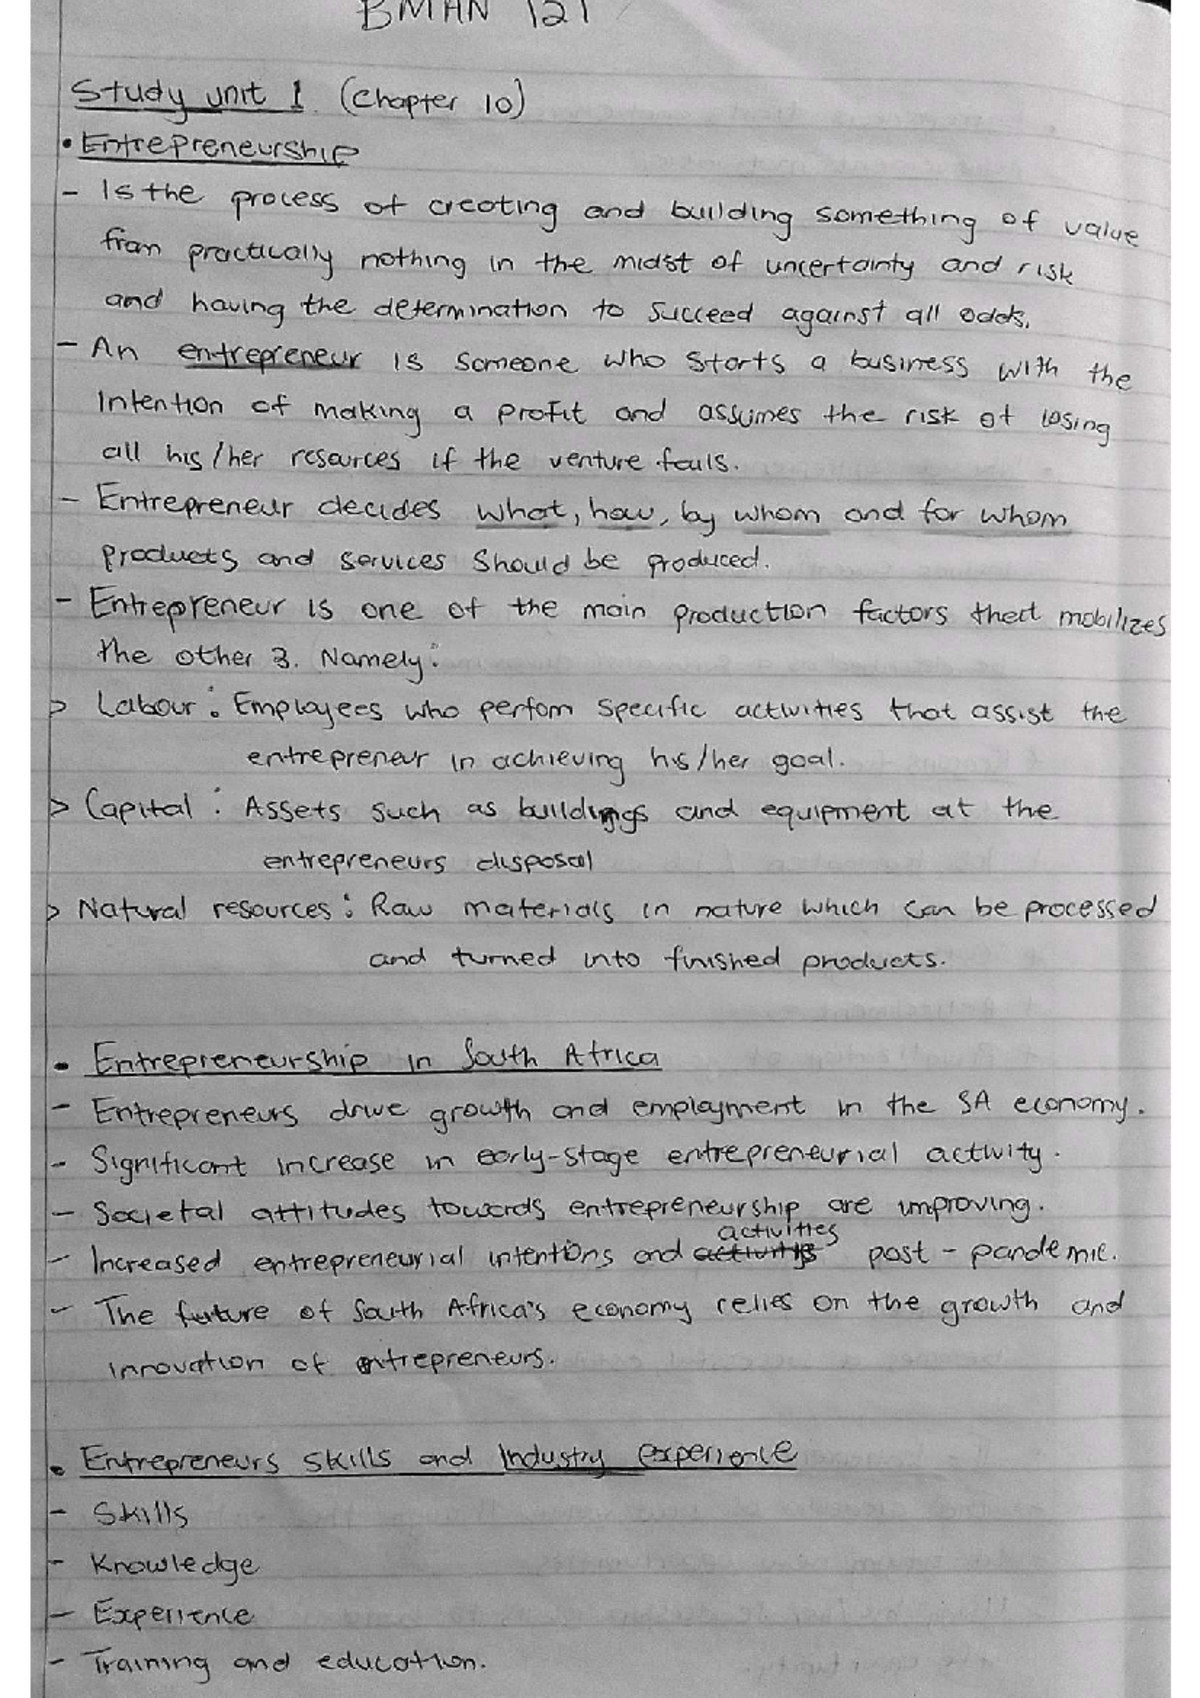 BMAN 121
Study unit 1 (Chapter 10)
• Entrepreneurship
- Is the process of creating and building something of value
from practically nothing in the midst of uncertainty and risk
and having the determination to succeed against all odds.
- An entrepreneur is someone who starts a business with the
intention of making a profit and assumes the risk of losing
all his/her resources if the venture fails.
- Entrepreneur decides what, how, by whom and for whom
products and services should be produced.
- Entrepreneur is one of the main production factors that mobilizes
the other 3. Namely:
> Labour: Employees who perfom specific activities that assist the
entrepreneur in achieving his/her goal.
> Capital: Assets such as buildings and equipment at the
entrepreneurs disposal
> Natural resources: Raw materials in nature which can be processed
and turned into finished products.
• Entrepreneurship in South Africa
- Entrepreneurs drive growth and employment in the SA economy.
- Significant increase in early-stage entrepreneurial activity.
- Societal attitudes towards entrepreneurship are improving.
- Increased entrepreneurial intentions and activities post-pandemic.
- The future of South Africa's economy relies on the growth and
innovation of entrepreneurs.
• Entrepreneurs skills and Industry experience
- Skills
- Knowledge
- Experience
- Training and education.